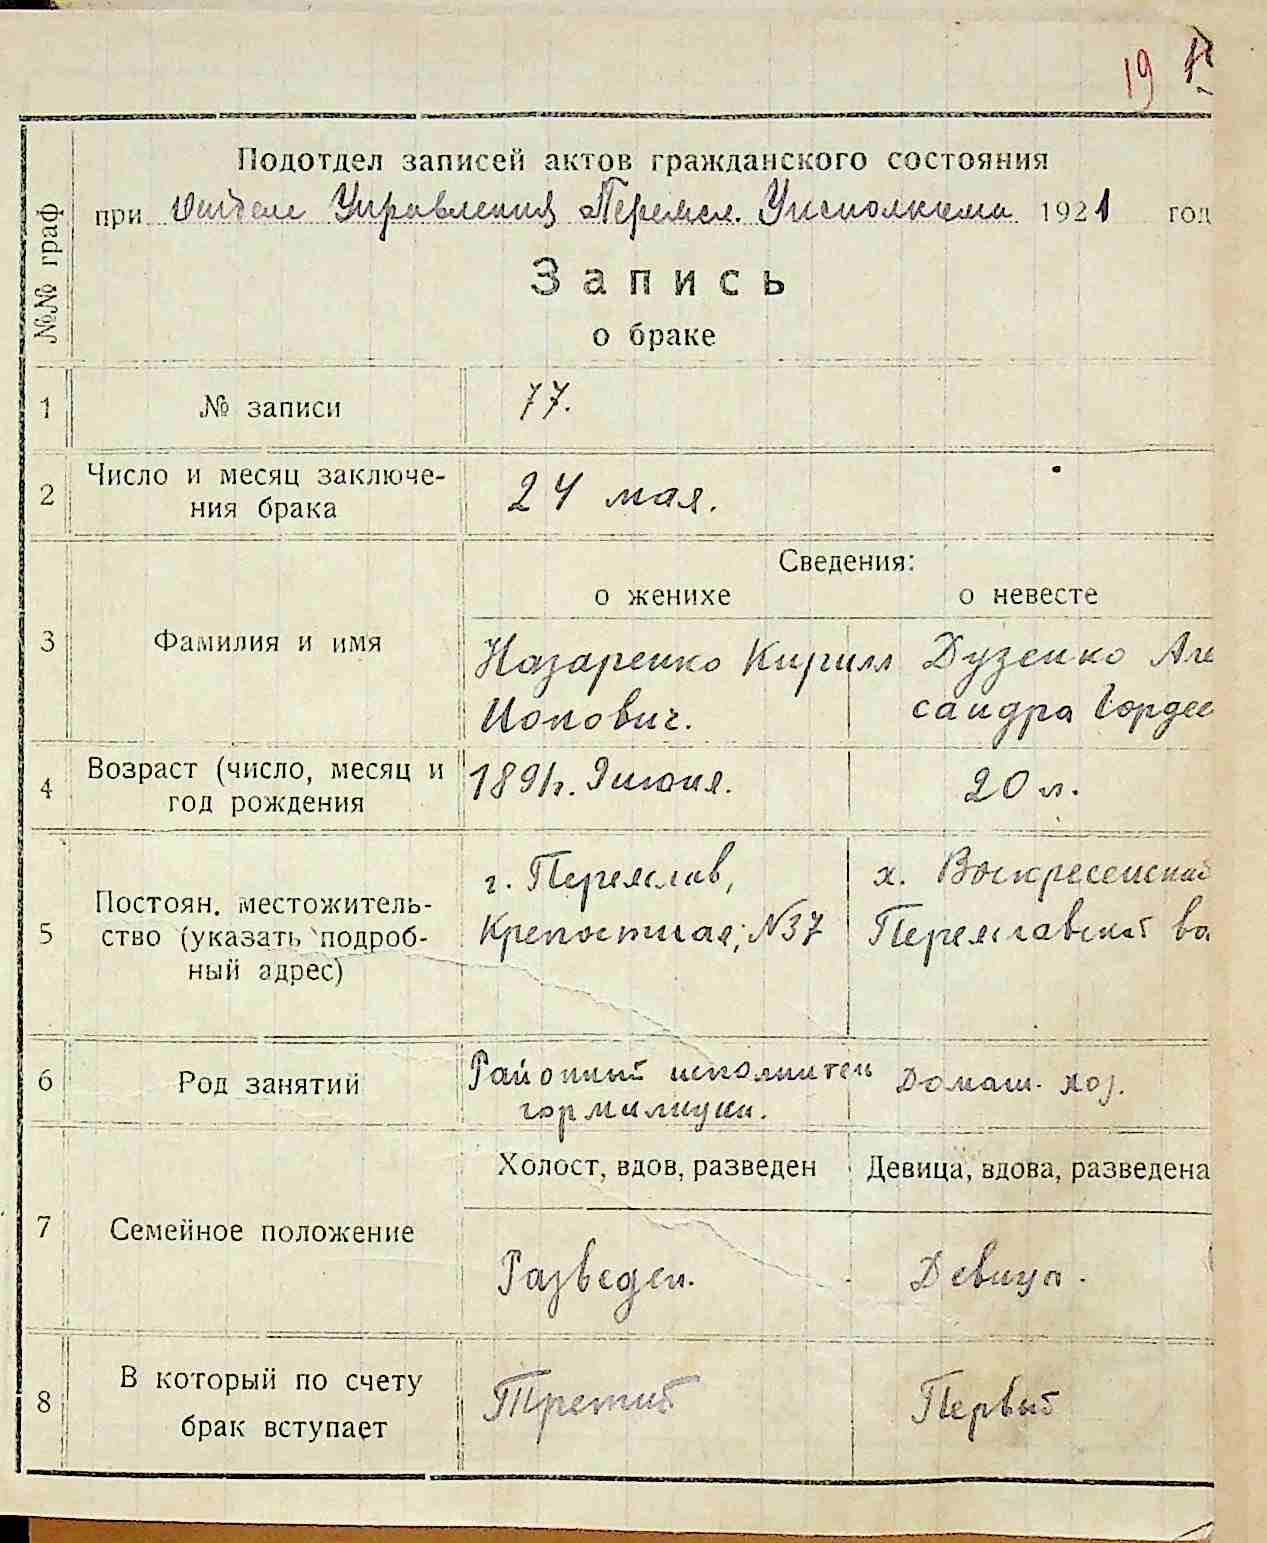 19
Подотдел записей актов гражданского состояния
при отделе Управления Переясл. Уисполкома 1921 год
№№ граф
Запись
о браке
1 № записи 77.
2 Число и месяц заключе-
ния брака 24 мая.
Сведения:
о женихе о невесте
3 Фамилия и имя Назаренко Кирилл Дузенко Але
Ионович. сандра Гордее
4 Возраст (число, месяц и
год рождения 1891г. 9 июня. 20 л.
5 Постоян. местожитель-
ство (указать подроб-
ный адрес) г. Переяслав, х. Воскресенский
Крепостная, №37 Переяславской во
6 Род занятий Районный исполнител Домаш. хоз.
гормилиции.
Холост, вдов, разведен Девица, вдова, разведена
7 Семейное положение Разведен. Девица.
8 В который по счету
брак вступает Третий Первый